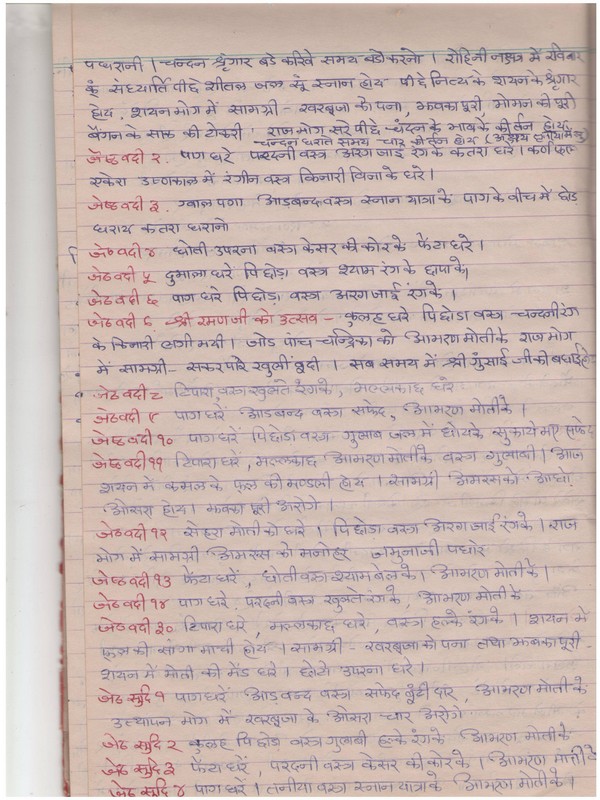 पधरानी । चन्दन श्रृंगार बडे करिवे समय बडो करनो । रोहिनी नक्षत्र में रविवार
कूं संध्यार्ति पीछे शीतल जल सूं स्नान होय पीछे नित्य के शयन के श्रृंगार
होय. शयन भोग में सामग्री - खरबूजा को पना, झबका पूरी मोमन की पूरी
बैंगन के साक की टोकरी । राजभोग सरे पीछे चंदन के भाव के कीर्तन होय
चन्दन धरावे समय चार कीर्तन होय
जेष्ठ वदी २. पाग धरे परदनी वस्त्र अरगजाई रंग के कतरा धरे । कर्ण फूल
एकेरा उष्णकाल में रंगीन वस्त्र किनारी विना के धरे ।
जेष्ठ वदी ३. ग्वाल पगा आडबन्द वस्त्र स्नान यात्रा के पाग के बीच में छोड
धराय कतरा धरानो
जेठ वदी ४ धोती उपरना वस्त्र केसर की कोर के फेंटा धरे ।
जेठ वदी ५ दुमाला धरे पिछोडा वस्त्र श्याम रंग के छापा के,
जेठ वदी ६ पाग धरे पिछोडा वस्त्र अरगजाई रंग के ।
जेठ वदी ७ श्री रमणजी को उत्सव - कुलह धरे पिछोडा वस्त्र चन्दनी रंग
के किनारी लगी भयी । जोड पांच चन्द्रिका को आभरण मोती के राजभोग
में सामग्री - सकरपारे खुली बूंदी । सब समय में श्री गुंसाई जी की बधाई होय
जेठ वदी ८ टिपारा वस्त्र खुलते रंग के, मल्लकाछ धरे
जेष्ठ वदी ९ पाग धरें आडबन्द वस्त्र सफेद, आभरण मोती के ।
जेष्ठ वदी १० पाग धरें पिछोडा वस्त्र गुलाब जल में धोय के सुकाये भए सफेद
जेष्ठ वदी ११ टिपारा धरें, मल्लकाछ आभरण मोती के वस्त्र गुलाबी । आज
शयन में कमल के फूल की मण्डली होय । सामग्री आमरस को आधो
ओसरा होय । झबका पूरी अरोगे ।
जेठ वदी १२ सेहरा मोती को धरे । पिछोडा वस्त्र अरगजाई रंग के । राज
भोग में सामग्री आमरस को मनोहर जमुनाजी पधारे
जेष्ठ वदी १३ फेंटा धरें, धोती वस्त्र श्याम बेल के । आभरण मोती के ।
जेष्ठ वदी १४ पाग धरे. परदनी वस्त्र खुलते रंग के, आभरण मोती के
जेठ वदी ३० टिपारा धरे, मल्लकाछ धरे, वस्त्र हल्के रंग के । शयन में
फूल की सांगा माची होय । सामग्री - खरबूजा को पना तथा झबका पूरी.
शयन में मोती की मेंड धरे । छोटो उपरना धरे ।
जेठ सुदि १ पाग धरें आडबन्द वस्त्र सफेद बूंटी दार, आभरण मोती के
उत्थापन भोग में खरबूजा के ओसरा चार अरोगे
जेठ सुदि २ कुलह पिछोडा वस्त्र गुलाबी हल्के रंग के आभरण मोती के
जेठ सुदि ३ फेंटा धरें, परदनी वस्त्र केसर की कोर के । आभरण मोती के
जेठ सुदि ४ पाग धरें । तनीया वस्त्र स्नान यात्रा के आभरण मोती के ।